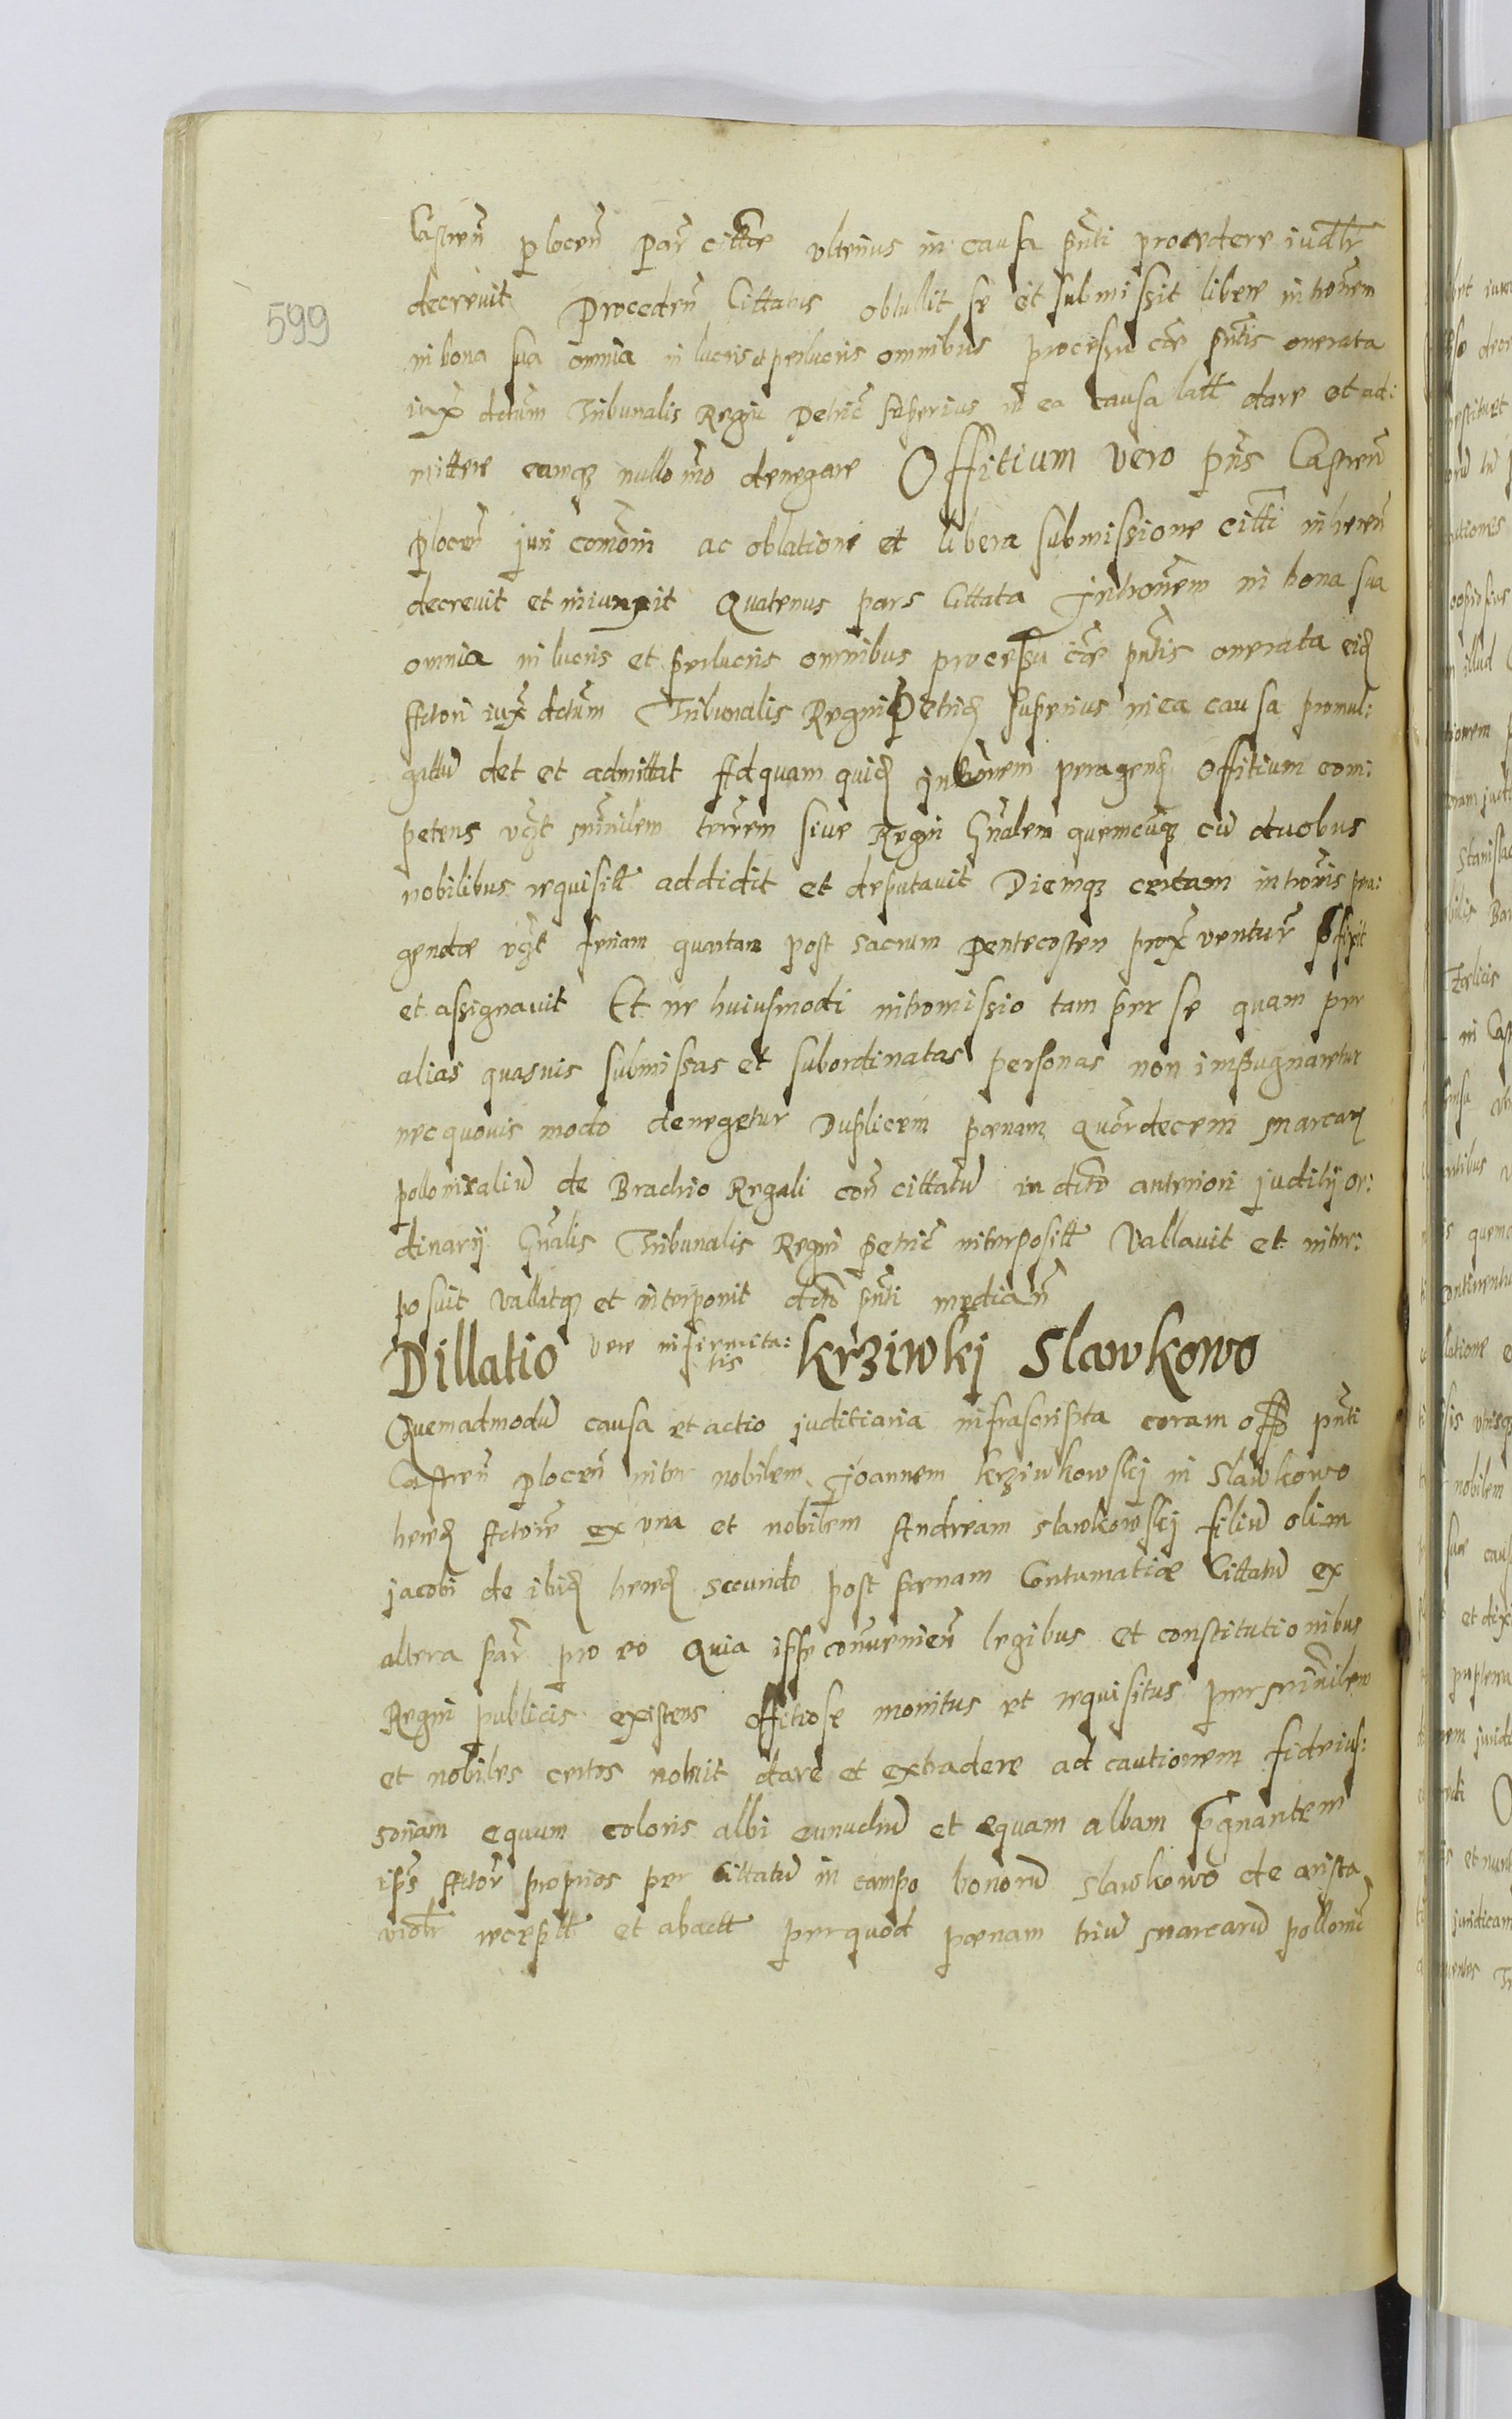 Castren̄ plocen̄ par cittatæ ulterius in causa pñti procedere iudlr
decrevit Proceden̄ Cittatus obtullit se et submissit libere intronem
599
in bona sua omnia in lucris et perlucris omnibus processu cãe pñtis onerata
iux dctum Tribunalis Regni Petric superius in ea causa latt dare et ad:
mittere eamq nullo mõ denegare Offitium vero pñs Castren̄
plocen̄ juri comõni ac oblatione et libera submissione citti inheren̄
decrevit et iniungit Quatenus pars Cittata Intronem in bona sua
omnia in lucris et perlucris omnibus processu cãe pñtis onerata eid
Actori iux dctum Tribunalis Regni Petric superius in ea causa promul:
gattu det et admittat Ad quam quid intronem peragend Offitium com:
petens vgt ministlem terrem sive Regni Gñalem quemcunq cū duobus
nobilibus requisitt addidit et deputavit Diemq certam intronis pera:
gendæ vgt feriam quartam post sacrum Pentecosten prox ventur pfixit
et assignavit Et ne huiusmodi intromissio tam per se quam per
alias quasvis submissas et subordinatas personas non impugnaretur
nec quovis modo denegetur Duplicem pœnam quordecem marcar
pollonicaliū de Brachio Regali con̄ cittatū in dcto anteriori juditij or:
dinarij Gñalis Tribunalis Regni petric interpositt Vallavit et inter:
posuit Vallatq et interponit dcto pñti median̄
Dillatio vere infirmita:
tis Krziwkj Slawkowo
Quemadmodū causa et actio juditiaria infrascripta coram offo pñti
Castren̄ plocen̄ inter nobilem Joannem Krziwkowskj in Slawkowo
hered Actore ex una et nobilem Andream Slawkowskj filiū olim
jacobi de ibid hered secundo post pœnam Contumatiæ Cittatū ex
altera par pro eo Quia ipse convenien̄ legibus et constitutionibus
Regni publicis existens offitiose monitus et requisitus per ministlem
et nobiles certos noluit dare et extradere ad cautionem fideius:
soriam equum coloris albi eunuchū et equam albam prægnantem
ips Actor proprios per Cittatū in campo bonorū Slawkowo de arista
violr receptt et abactt per quod pœnam triū marcarū pollonic